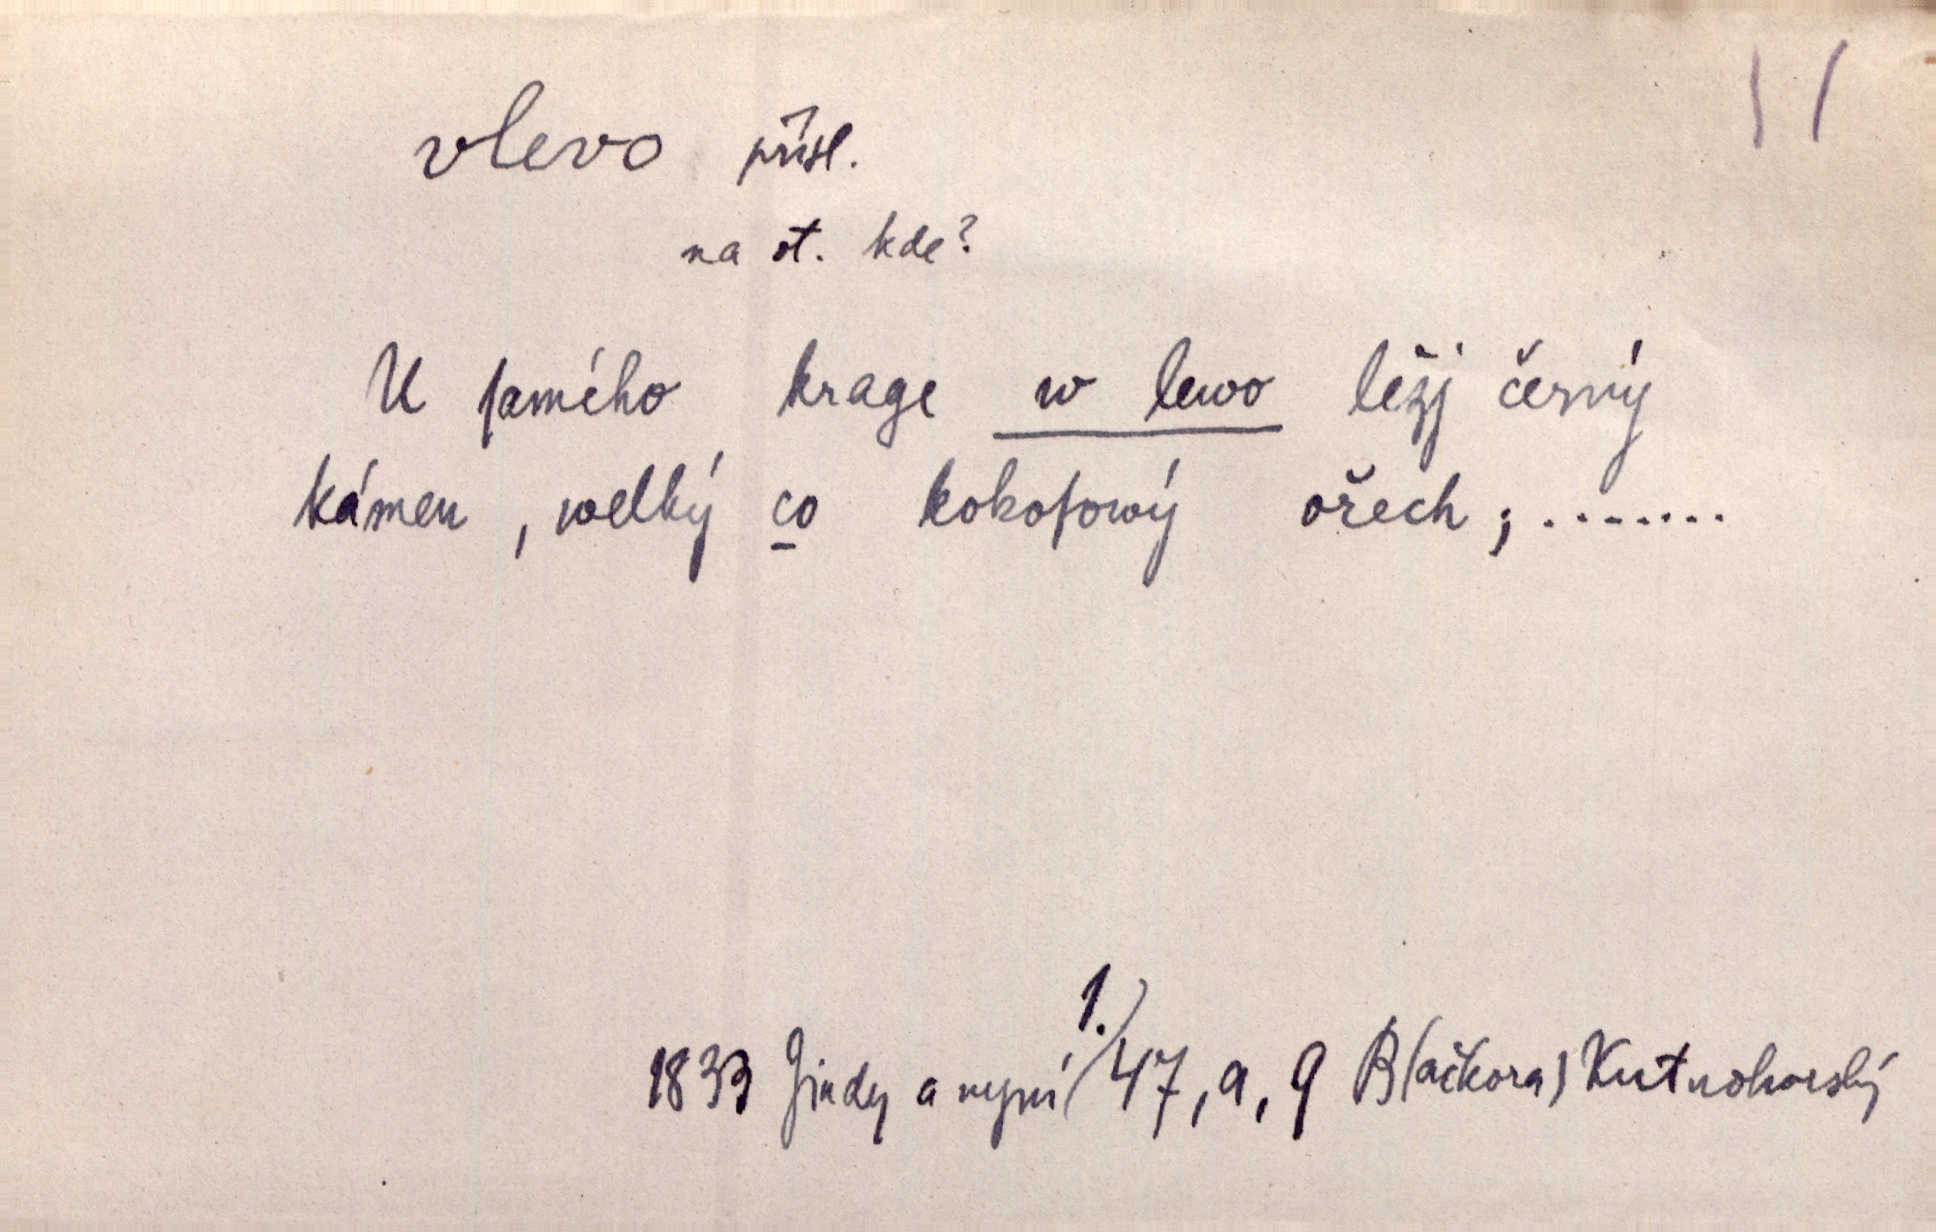 vlevo přísl.
na ot. kde?
U ſamého krage w lewo ležj černý
kámen, welký co kokoſowý ořech; .......
1833 Jindy a nyní 1./47, a, 9 B(ačkora) Kutnohorský